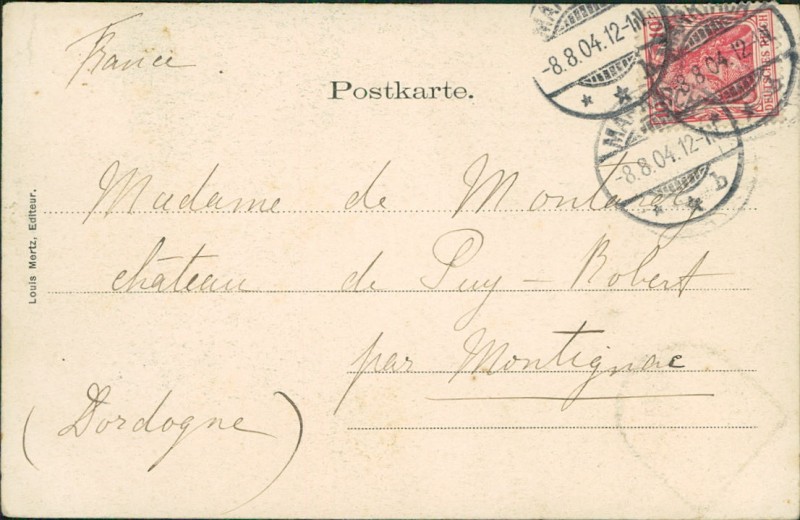 France
Postkarte.
-8.8.04.12-1N
-8.8.04.12
DEUTSCHES REICH
-8.8.04.12-1N
b
Madame de
château de Puy-Robert
par Montignac
(Dordogne)
Louis Mertz, Editeur.